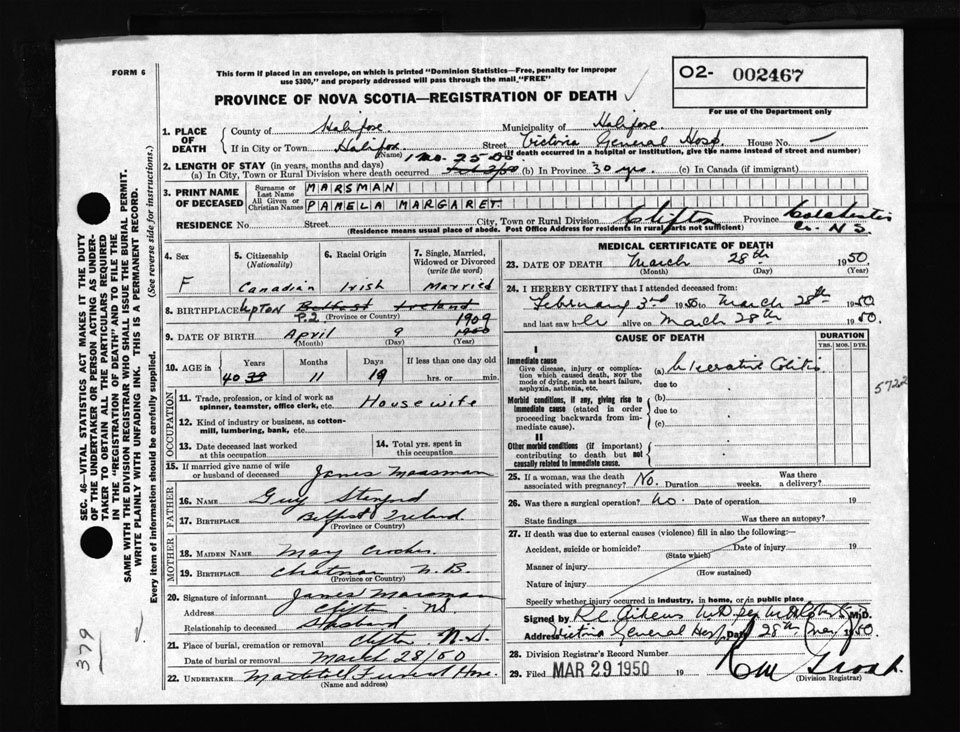 FORM 6
This form if placed in an envelope, on which is printed "Dominion Statistics—Free, penalty for improper
use $300," and properly addressed will pass through the mail, "FREE"
O2- 002467
For use of the Department only
PROVINCE OF NOVA SCOTIA—REGISTRATION OF DEATH ✓
1. PLACE OF DEATH { County of Halifax Municipality of Halifax
If in City or Town Halifax Street Victoria General Hosp. House No.
(Name) (If death occurred in a hospital or institution, give the name instead of street and number)
1 Mo. 25 Ds.
2. LENGTH OF STAY (in years, months and days)
(a) In City, Town or Rural Division where death occurred Feb 3/50 (b) In Province 30 yrs. (c) In Canada (if immigrant)
3. PRINT NAME OF DECEASED { Surname or Last Name MARSMAN
All Given or Christian Names PAMELA MARGARET
RESIDENCE No. Street City, Town or Rural Division Clifton Province Colchester
Co. N.S.
(Residence means usual place of abode. Post Office Address for residents in rural parts not sufficient)
4. Sex F
5. Citizenship (Nationality) Canadian
6. Racial Origin Irish
7. Single, Married, Widowed or Divorced (write the word) Married
8. BIRTHPLACE UPTON Belfast Ireland
P.2 (Province or Country) 1909
9. DATE OF BIRTH April 9
(Month) (Day) (Year)
10. AGE in { Years 40 39 Months 11 Days 19 If less than one day old hrs. or min.
OCCUPATION
11. Trade, profession, or kind of work as spinner, teamster, office clerk, etc. Housewife
12. Kind of industry or business, as cotton-mill, lumbering, bank, etc.
13. Date deceased last worked at this occupation
14. Total yrs. spent in this occupation
15. If married give name of wife or husband of deceased James Marsman
FATHER
16. NAME Guy Stenford
17. BIRTHPLACE Belfast Ireland.
(Province or Country)
MOTHER
18. MAIDEN NAME May Crocker
19. BIRTHPLACE Chatman N.B.
(Province or Country)
20. Signature of informant James Marsman
Address Clifton N.S.
Relationship to deceased Husband
21. Place of burial, cremation or removal Clifton N.S.
Date of burial or removal March 28/50
22. UNDERTAKER Mattatall Funeral Home.
(Name and address)
MEDICAL CERTIFICATE OF DEATH
23. DATE OF DEATH March 28th 1950
(Month) (Day) (Year)
24. I HEREBY CERTIFY that I attended deceased from:
February 3rd 1950 to March 28th 1950
and last saw her alive on March 28th 1950.
CAUSE OF DEATH
DURATION
YRS. MOS. DYS.
I
Immediate cause
Give disease, injury or complication which caused death, NOT the mode of dying, such as heart failure, asphyxia, asthenia, etc.
(a) Ulcerative Colitis
due to
5722
Morbid conditions, if any, giving rise to immediate cause (stated in order proceeding backwards from immediate cause).
(b)
due to
(c)
II
Other morbid conditions (if important) contributing to death but not causally related to immediate cause.
25. If a woman, was the death associated with pregnancy? No. Duration weeks. Was there a delivery?
26. Was there a surgical operation? No. Date of operation 19
State findings Was there an autopsy?
27. If death was due to external causes (violence) fill in also the following:—
Accident, suicide or homicide? Date of injury 19
(State which)
Manner of injury
(How sustained)
Nature of injury
Specify whether injury occurred in industry, in home, or in public place
Signed by M.D.
Address Victoria General Hosp. Date 28th 1950.
28. Division Registrar's Record Number
29. Filed MAR 29 1950 19
(Division Registrar)
SEC. 46—VITAL STATISTICS ACT MAKES IT THE DUTY
OF THE UNDERTAKER OR PERSON ACTING AS UNDER-
TAKER TO OBTAIN ALL THE PARTICULARS REQUIRED
IN THE "REGISTRATION OF DEATH" AND TO FILE THE
SAME WITH THE DIVISION REGISTRAR WHO SHALL ISSUE THE BURIAL PERMIT.
WRITE PLAINLY WITH UNFADING INK. THIS IS A PERMANENT RECORD.
Every item of information should be carefully supplied. (See reverse side for instructions.)
379